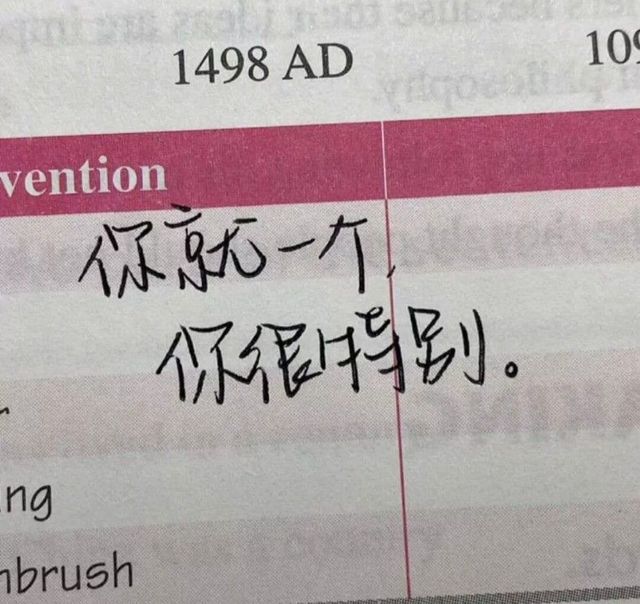 1498 AD
109
vention
你就一个,
你很特别。
ng
nbrush